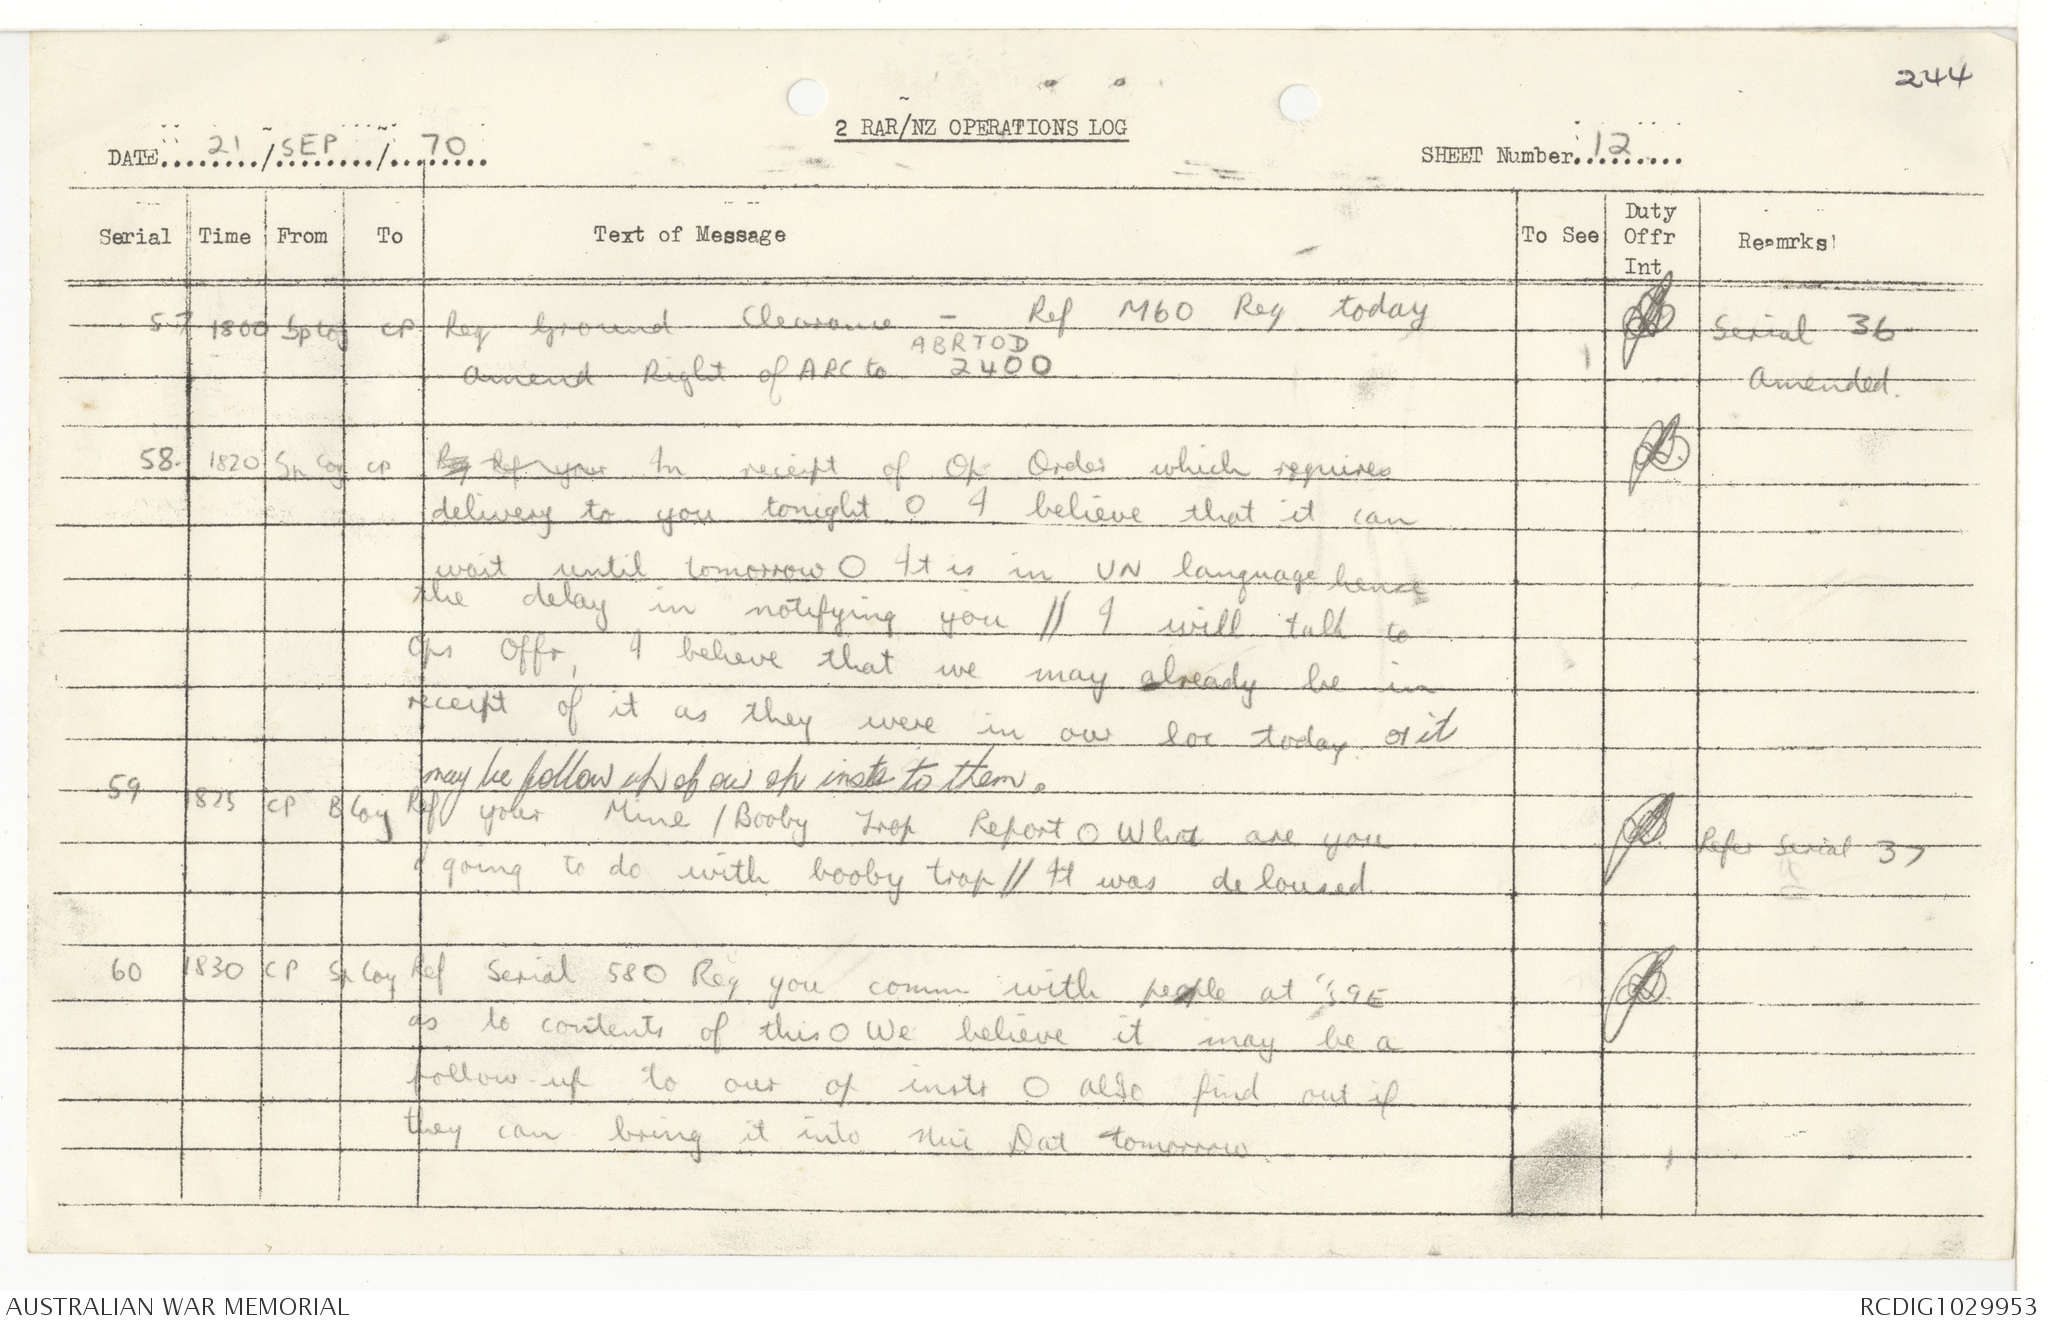 244
2 RAR/NZ OPERATIONS LOG
DATE 21 / SEP / 70
SHEET Number 12
Serial Time From To Text of Message To See Duty Offr Int Remrks
57 1800 Sp Coy CP Req Ground Clearance - Ref M60 Req today Serial 36
ABRTOD
amend Right of ARC to 2400 amended.
58. 1820 Sp Coy CP Ref your In receipt of Op Order which requires
delivery to you tonight O I believe that it can
wait until tomorrow O It is in VN language hence
the delay in notifying you // I will talk to
Ops Offr, I believe that we may already be in
receipt of it as they were in our loc today or it
may be follow up of our op instr to them.
59 1825 CP B Coy Ref your Mine / Booby Trap Report O What are you
going to do with booby trap // It was deloused Refer Serial 37
60 1830 CP Sp Coy Ref Serial 58 O Req you comm with people at 39E
as to contents of this O We believe it may be a
follow-up to our op instr O also find out if
they can bring it into Nui Dat tomorrow.
AUSTRALIAN WAR MEMORIAL
RCDIG1029953